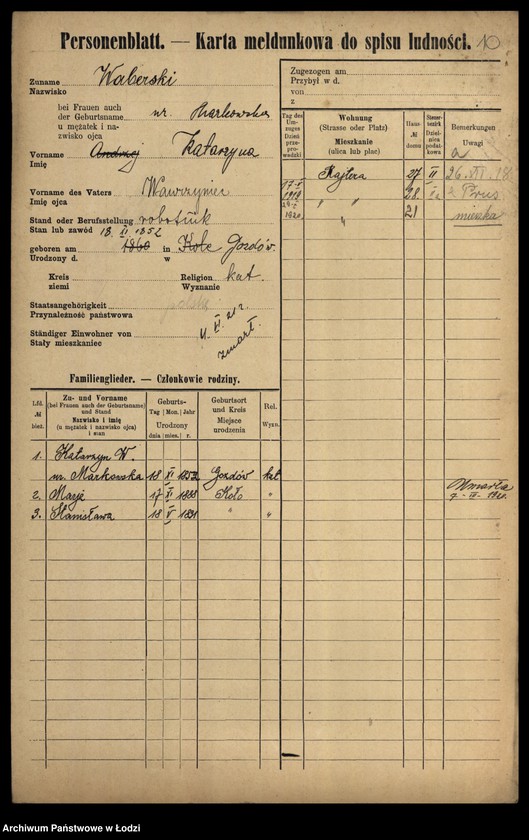 Personenblatt. — Karta meldunkowa do spisu ludności. 10
Zuname Waberski
Nazwisko
bei Frauen auch
der Geburtsname ur. Markowska
u mężatek i na-
zwisko ojca
Vorname Andrzej Katarzyna
Imię
Vorname des Vaters Wawrzyniec
Imię ojca
Stand oder Berufsstellung robotnik
Stan lub zawód 18. XI. 1852
geboren am 1860 in Koło Gozdów
Urodzony d. w
Kreis Religion kat.
ziemi Wyznanie
Staatsangehörigkeit polska
Przynależność państwowa
Ständiger Einwohner von
Stały mieszkaniec
zmarł
Zugezogen am
Przybył w d.
von
z
Tag des Um-zuges Wohnung Haus- Steuer-bezirk Bemerkungen
Dzień przeprowadzki (Strasse oder Platz) № domu Dzielnica podatkowa Uwagi
Mieszkanie
(ulica lub plac)
Rajtera 27 II 26. XII. 18
1919 " " 28
1920 " 21 mieszka
Familienglieder. — Członkowie rodziny.
Lfd. № bież. Zu- und Vorname Geburts- Geburtsort Rel.
(bei Frauen auch der Geburtsname) und Stand Tag Mon. Jahr und Kreis Wyzn.
Nazwisko i imię Urodzony Miejsce
(u mężatek i nazwisko ojca) i stan dnia mies. r. urodzenia
1. Katarzyn W.
ur. Markowska 18 XI 1852 Gozdów kat
2. Marja 17 X 1888 Koło " Umarła
3. Stanisława 18 V 1891 " "
Archiwum Państwowe w Łodzi